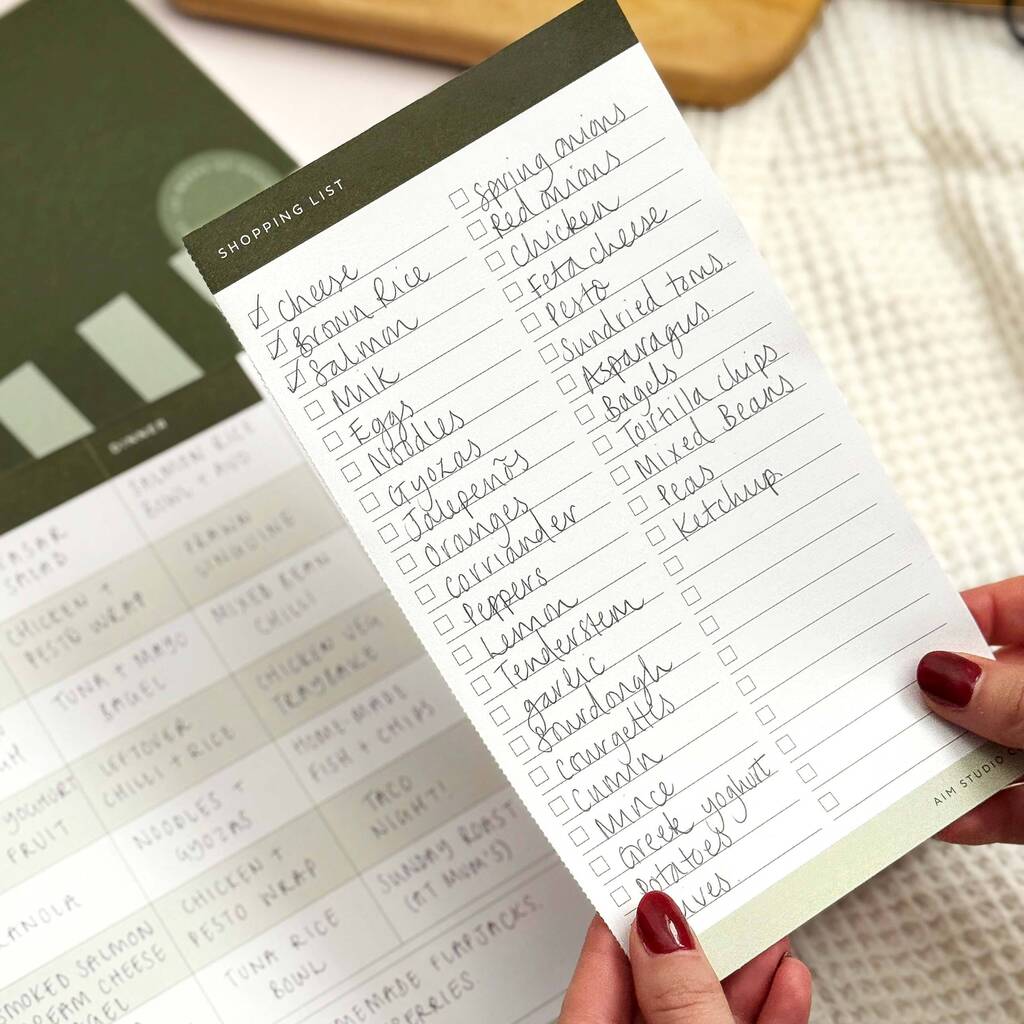 SHOPPING LIST
Cheese
Brown Rice
Salmon
Milk
Eggs
Noodles
Gyozas
Jalepeños
Oranges
Corriander
Peppers
Lemon
Tenderstem
garlic
Sourdough
Courgettes
Cumin
Mince
Greek yoghurt
Potatoes
Spring onions
Red onions
Chicken
Feta cheese
Pesto
Sundried toms.
Asparagus.
Bagels
Tortilla chips
Mixed Beans
Peas
Ketchup.
AIM STUDIO
DINNER
SALMON RICE
BOWL + AVO
SALAD
PRAWN
LINGUINE
CHICKEN +
PESTO WRAP
MIXED BEAN
CHILLI
TUNA + MAYO
BAGEL
CHICKEN VEG
TRAYBAKE
LEFTOVER
CHILLI + RICE
HOME-MADE
FISH + CHIPS
YOGHURT
FRUIT
NOODLES +
GYOZAS
TACO
NIGHT!
CHICKEN +
PESTO WRAP
SUNDAY ROAST
(AT MUM'S)
SMOKED SALMON
TUNA RICE
BOWL
FLAPJACKS.